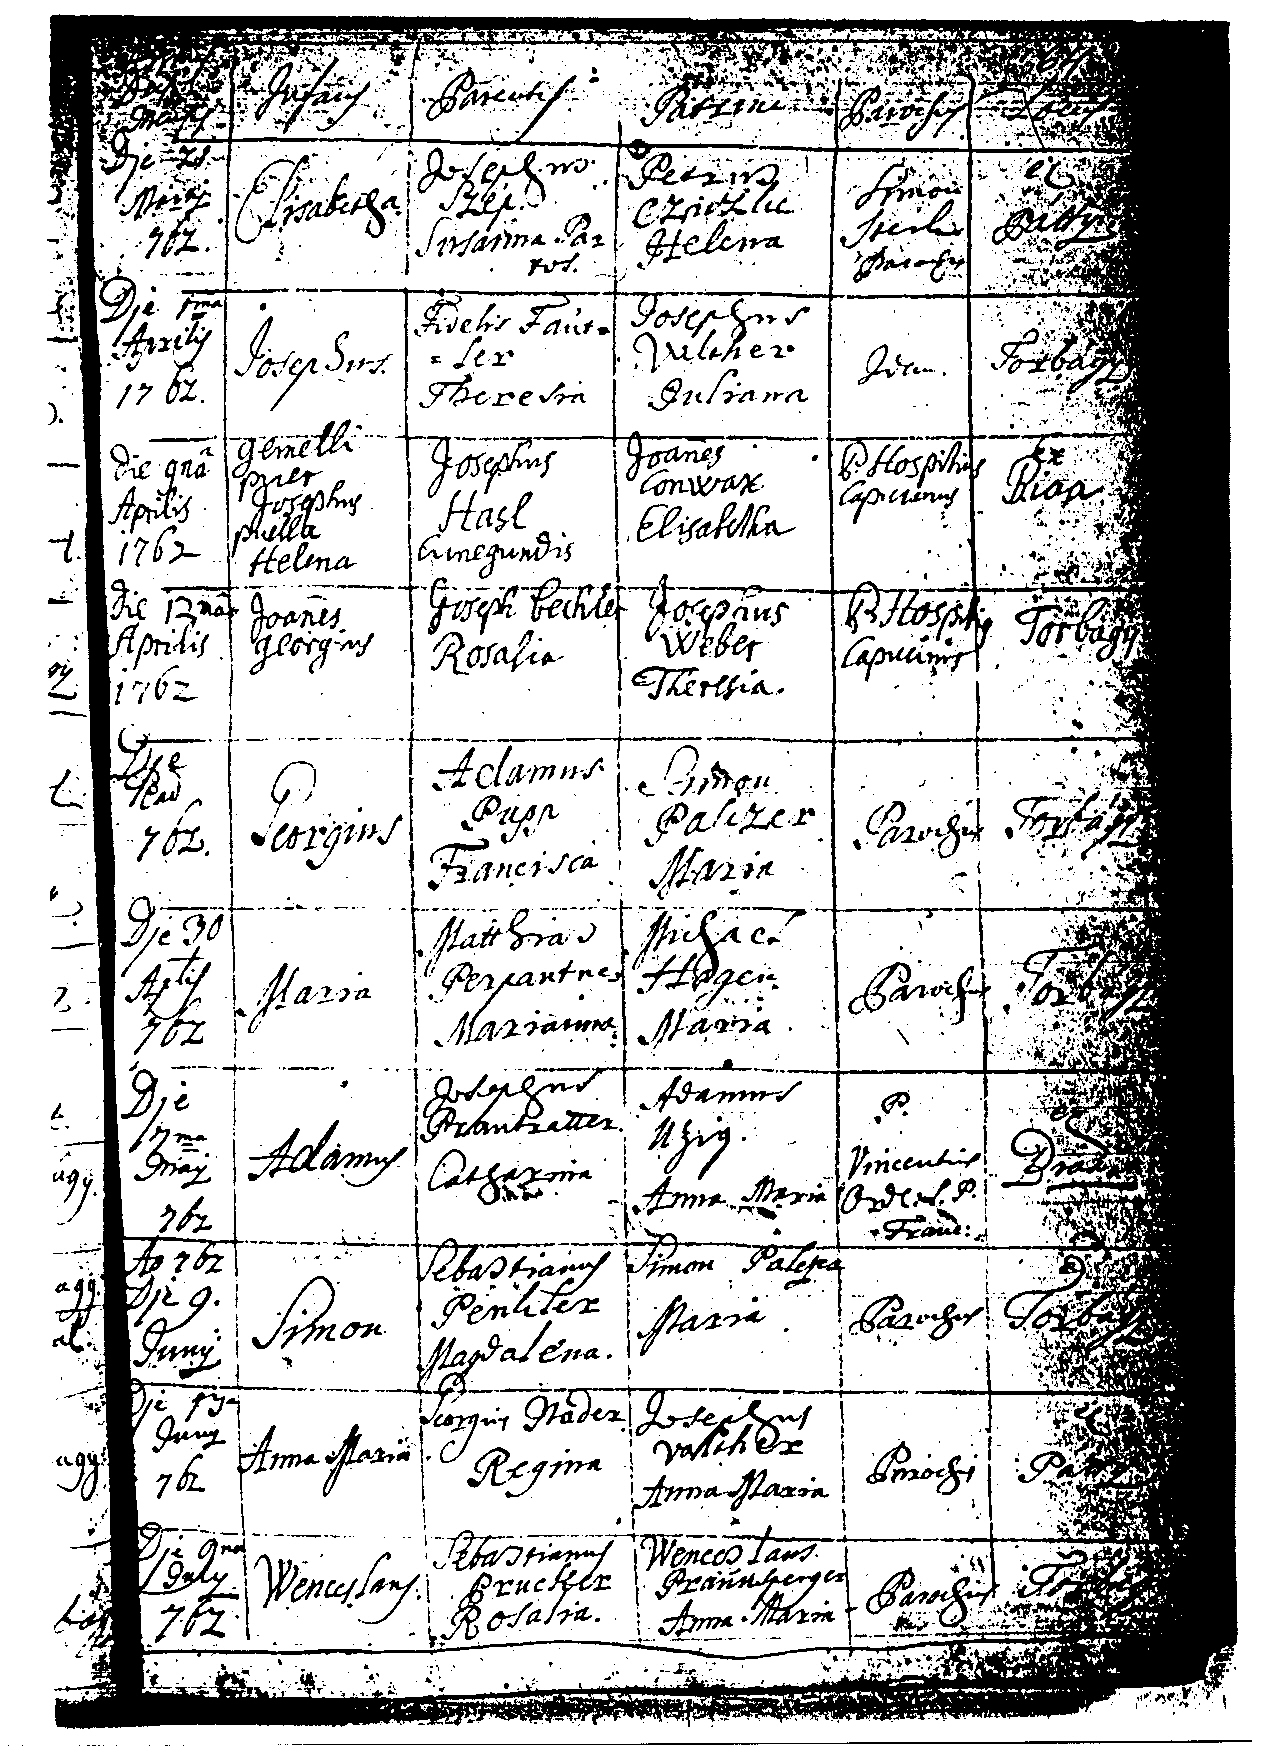 Infans
Parentes
Patrini
Parochus
Locus
Die 21
762.
Elisabetha
Josephus
Szép.
Susanna Pa
ros.
Petrus
Helena
Simon
Parochus
ex
Die 1ma
Aprilis
1762.
Josephus.
Fidelis Faut=
=ler
Theresia
Josephus
Vilcher
Juliana
Idem.
Torbágy
die 9nâ
Aprilis
1762
gemelli
puer
Josephus
puella
Helena
Josephus
Hasl
Cunegundis
Joañes
Conwax
Elisabetha
P. Hospitius
Capucinus
ex
Bian
die 12mâ
Aprilis
1762
Joañes
georgius
Joseph bechler
Rosalia
Josephus
Weber
Theresia.
P. Hospitiq
Capucinus
Torbágy
Die
762.
Georgius
Adamus
Pupp
Francisca
Simon
Palizer
Maria
Parochus
Torbágy
Die 30
Aplis
762
Maria
Matthias
Perpantner
Marianna
Michael
Hagen
Maria.
Parochus
Torbágy
Die
17ma
Maij
762
Adamus
Josephus
Prantratter.
Catharina
Adamus
Uhrig.
Anna Maria
P.
Vincentius
Ord. s. P.
Franc:
ex
Ao 762
Die 9.
Junij
Simon
Sebastianus
Penliter
Magdalena.
Simon
Maria
Parochus
Torbágy
Die 13
Juny
762
Anna Maria
Georgius Nader
Regina
Josephus
Valcher
Anna Maria
Parochus
Die 9na
July
762
Wenceslaus.
Sebastianus
Prucker
Rosalia.
Wenceslaus.
Prañnsperger
Anna Maria
Parochus